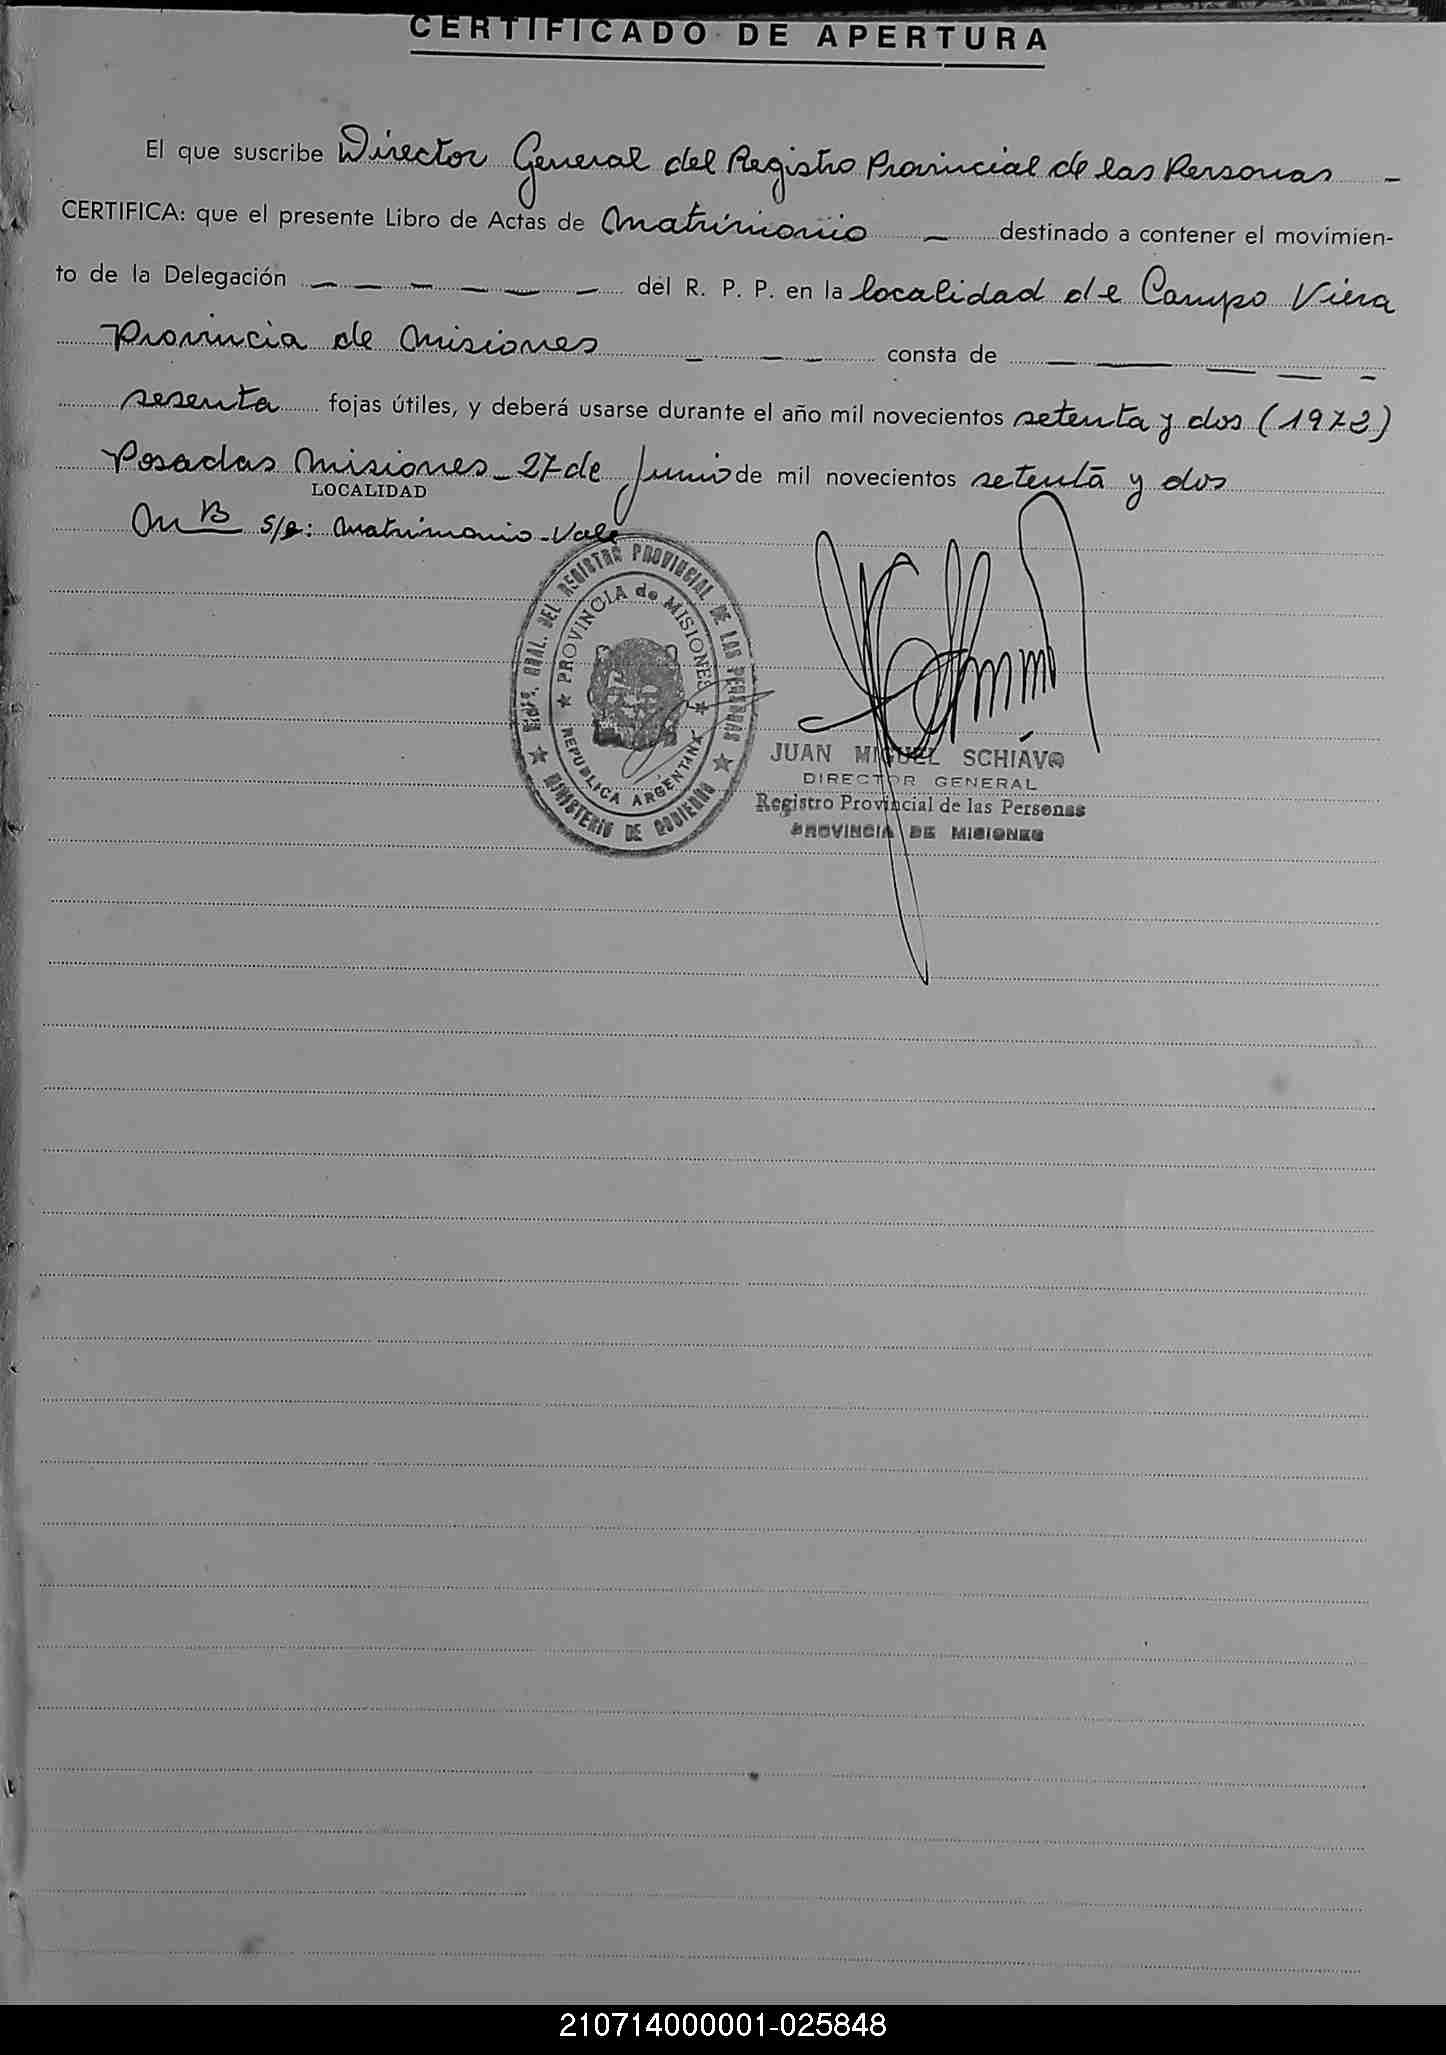 CERTIFICADO DE APERTURA
El que suscribe Director General del Registro Provincial de las Personas -
CERTIFICA: que el presente Libro de Actas de Matrimonio - destinado a contener el movimien-
to de la Delegación - - - - - - del R. P. P. en la localidad de Campo Viera
Provincia de Misiones - - - consta de - - - - -
sesenta fojas útiles, y deberá usarse durante el año mil novecientos setenta y dos (1972)
Posadas Misiones - 27 de Junio de mil novecientos setenta y dos
LOCALIDAD
s/r: Matrimonio - Vale
DEL REGISTRO PROVINCIAL DE LAS PERSONAS
PROVINCIA de MISIONES
REPUBLICA ARGENTINA
MINISTERIO DE GOBIERNO
JUAN MIGUEL SCHIAVO
DIRECTOR GENERAL
Registro Provincial de las Personas
PROVINCIA DE MISIONES
210714000001-025848